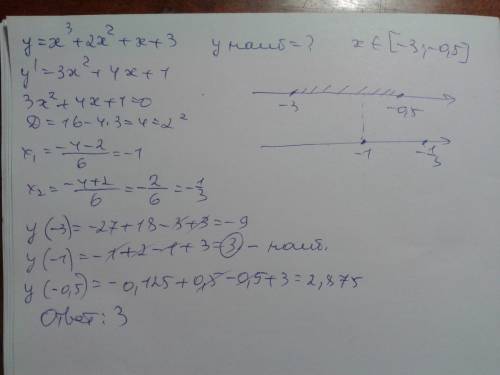 y=x³+2x²+x+3 y наиб=? x∈[-3;-0,5]
y'=3x²+4x+1
3x²+4x+1=0
D=16-4·3=4=2²
-3 -0,5
x₁=(-4-2)/6=-1
-1 -1/3
x₂=(-4+2)/6=-2/6=-1/3
y(-3)=-27+18-3+3=-9
y(-1)=-1+2-1+3=3 - наиб.
y(-0,5)=-0,125+0,5-0,5+3=2,875
Ответ: 3